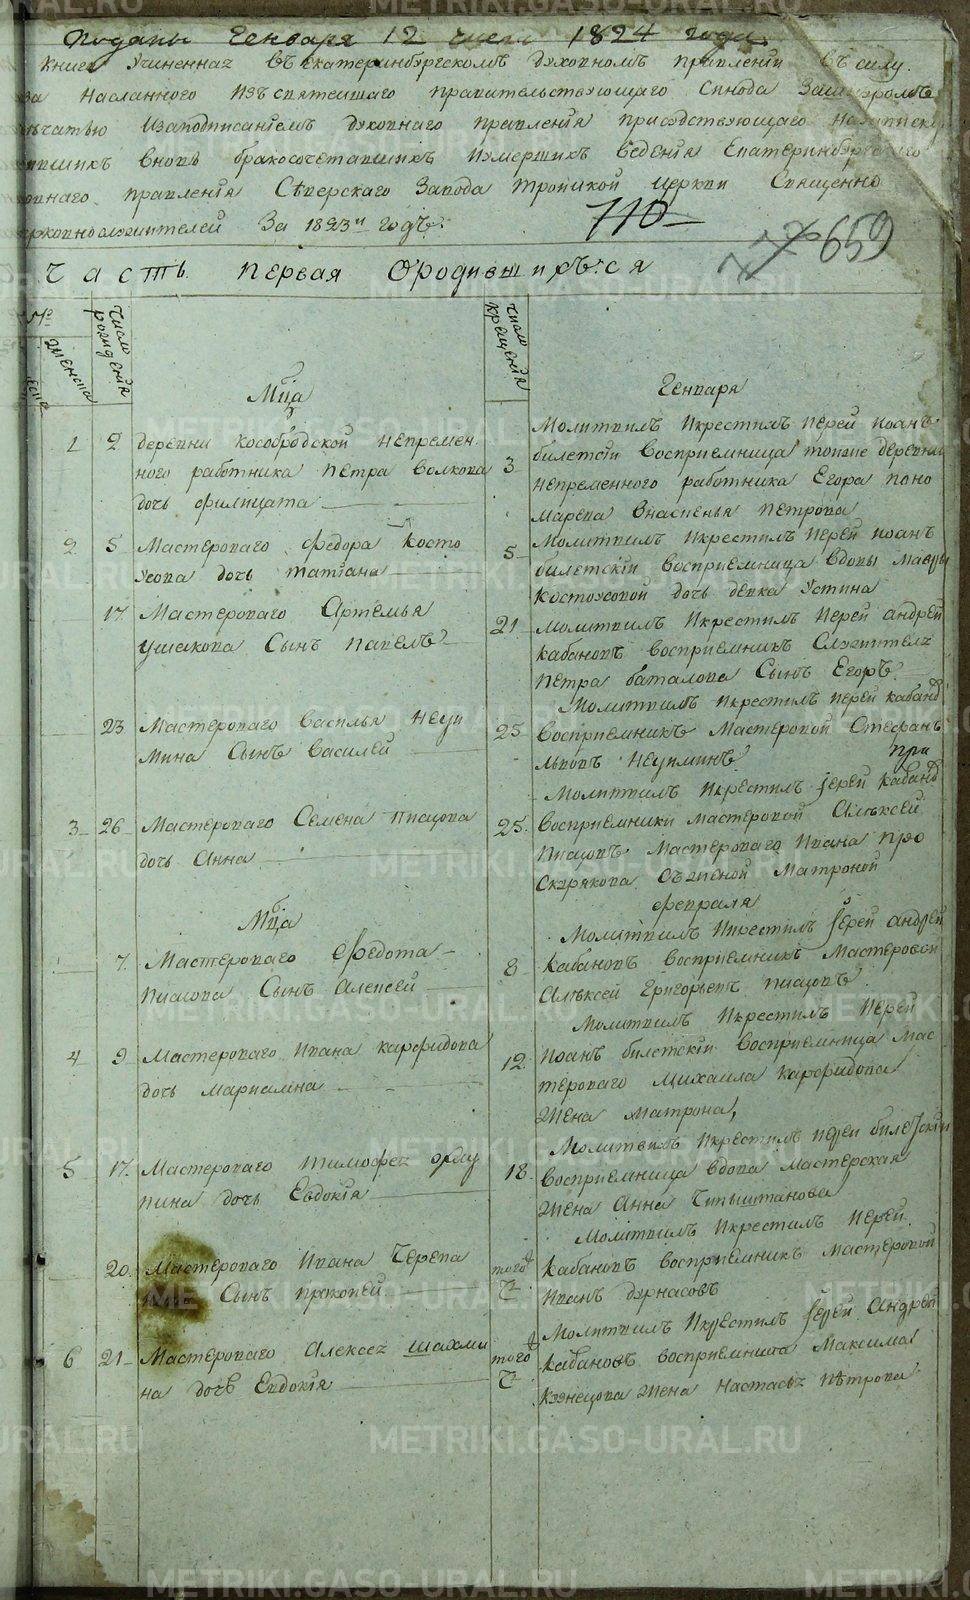 Поданы Генваря 12 числа 1824 года.
книга Учиненная въ Екатеринбургскомъ духовномъ правленіи в силу
насланного Изъ святейшаго правительствующаго Синода Зашнуромъ
печатью Изаподписаніемъ духовнаго правления присудствующаго
вновь бракосочетавшихъ Иумершихъ ведения Екатеринбургскаго
правленія Сѣверскаго Завода троицкой церкви Священно
церковнослужителей За 1823й годъ.
710
659
Часть первая Ородившихъся
число рождения
число крещения
женска
Мца
Генваря
1 2 деревни Кособродской непремен
ного работника петра волкова
дочь филицата
3 Молитвилъ Икрестилъ Иерей иоанъ
билетсіи Восприемница тоиже деревни
непременного работника Егора поно
марева Петрова
2 5 Мастероваго федора косто
усова дочь татіана
5 Молитвилъ Икрестилъ Иерей иоанъ
билетскіи восприемница вдовы мавры
костоусовой дочь девка Устина
17 Мастероваго Артемья
ушакова Сынъ павелъ
21 Молитвилъ Икрестилъ Иерей андрей
кабановъ восприемникъ Служителя
петра баталова Сынъ Егоръ
23 Мастероваго василья неуи
мина Сынъ василей
25 Молитвилъ Икрестилъ Иерей кабанов
восприемникъ Мастеровой Стефанъ
львовъ неуиминъ
при
3 26 Мастероваго Семена писцова
дочь Анна
25 Молитвилъ Икрестилъ Иерей кабанов
восприемники мастеровой Алексей
писцовъ Мастероваго Ивана про
скурякова съ женой Матроной
Мца
февраля
7 Мастероваго Федота
писцова Сынъ Алексей
8 Молитвилъ Икрестилъ Иерей андрей
кабановъ восприемникъ Мастеровой
Алексей Григорьевъ писцовъ
4 9 Мастероваго Ивана карфидова
дочь мариамна
12 Молитвилъ Икрестилъ Иерей
иоанъ билетскіи восприемница мас
тероваго михаила карфидова
жена матрона,
5 17 Мастероваго тимофея
пина дочь Евдокія
18 Молитвилъ Икрестилъ иерей билетскіи
восприемница вдова мастерская
жена анна
20 Мастероваго Ивана Черепа
Сынъ прокопей
того ч Молитвилъ Икрестилъ Иерей
кабановъ восприемникъ мастеровой
Иванъ дурнасовъ
6 21 Мастероваго Алексея шахми
на дочь Евдокія
того ч Молитвилъ Икрестилъ Иерей Андрей
кабановъ восприемница Максима
кузнецова жена настасья петрова
METRIKI.GASO-URAL.RU